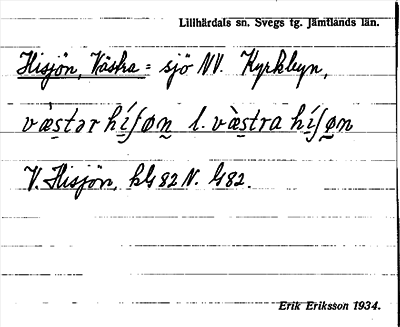 Lillhärdals sn. Svegs tg. Jämtlands län.
Hisjön, Västra = sjö NV. Kyrkbyn,
væ̀stər híʃøn l. væ̀stra híʃøn
V. Hisjön, 82 N. 82.
Erik Eriksson 1934.